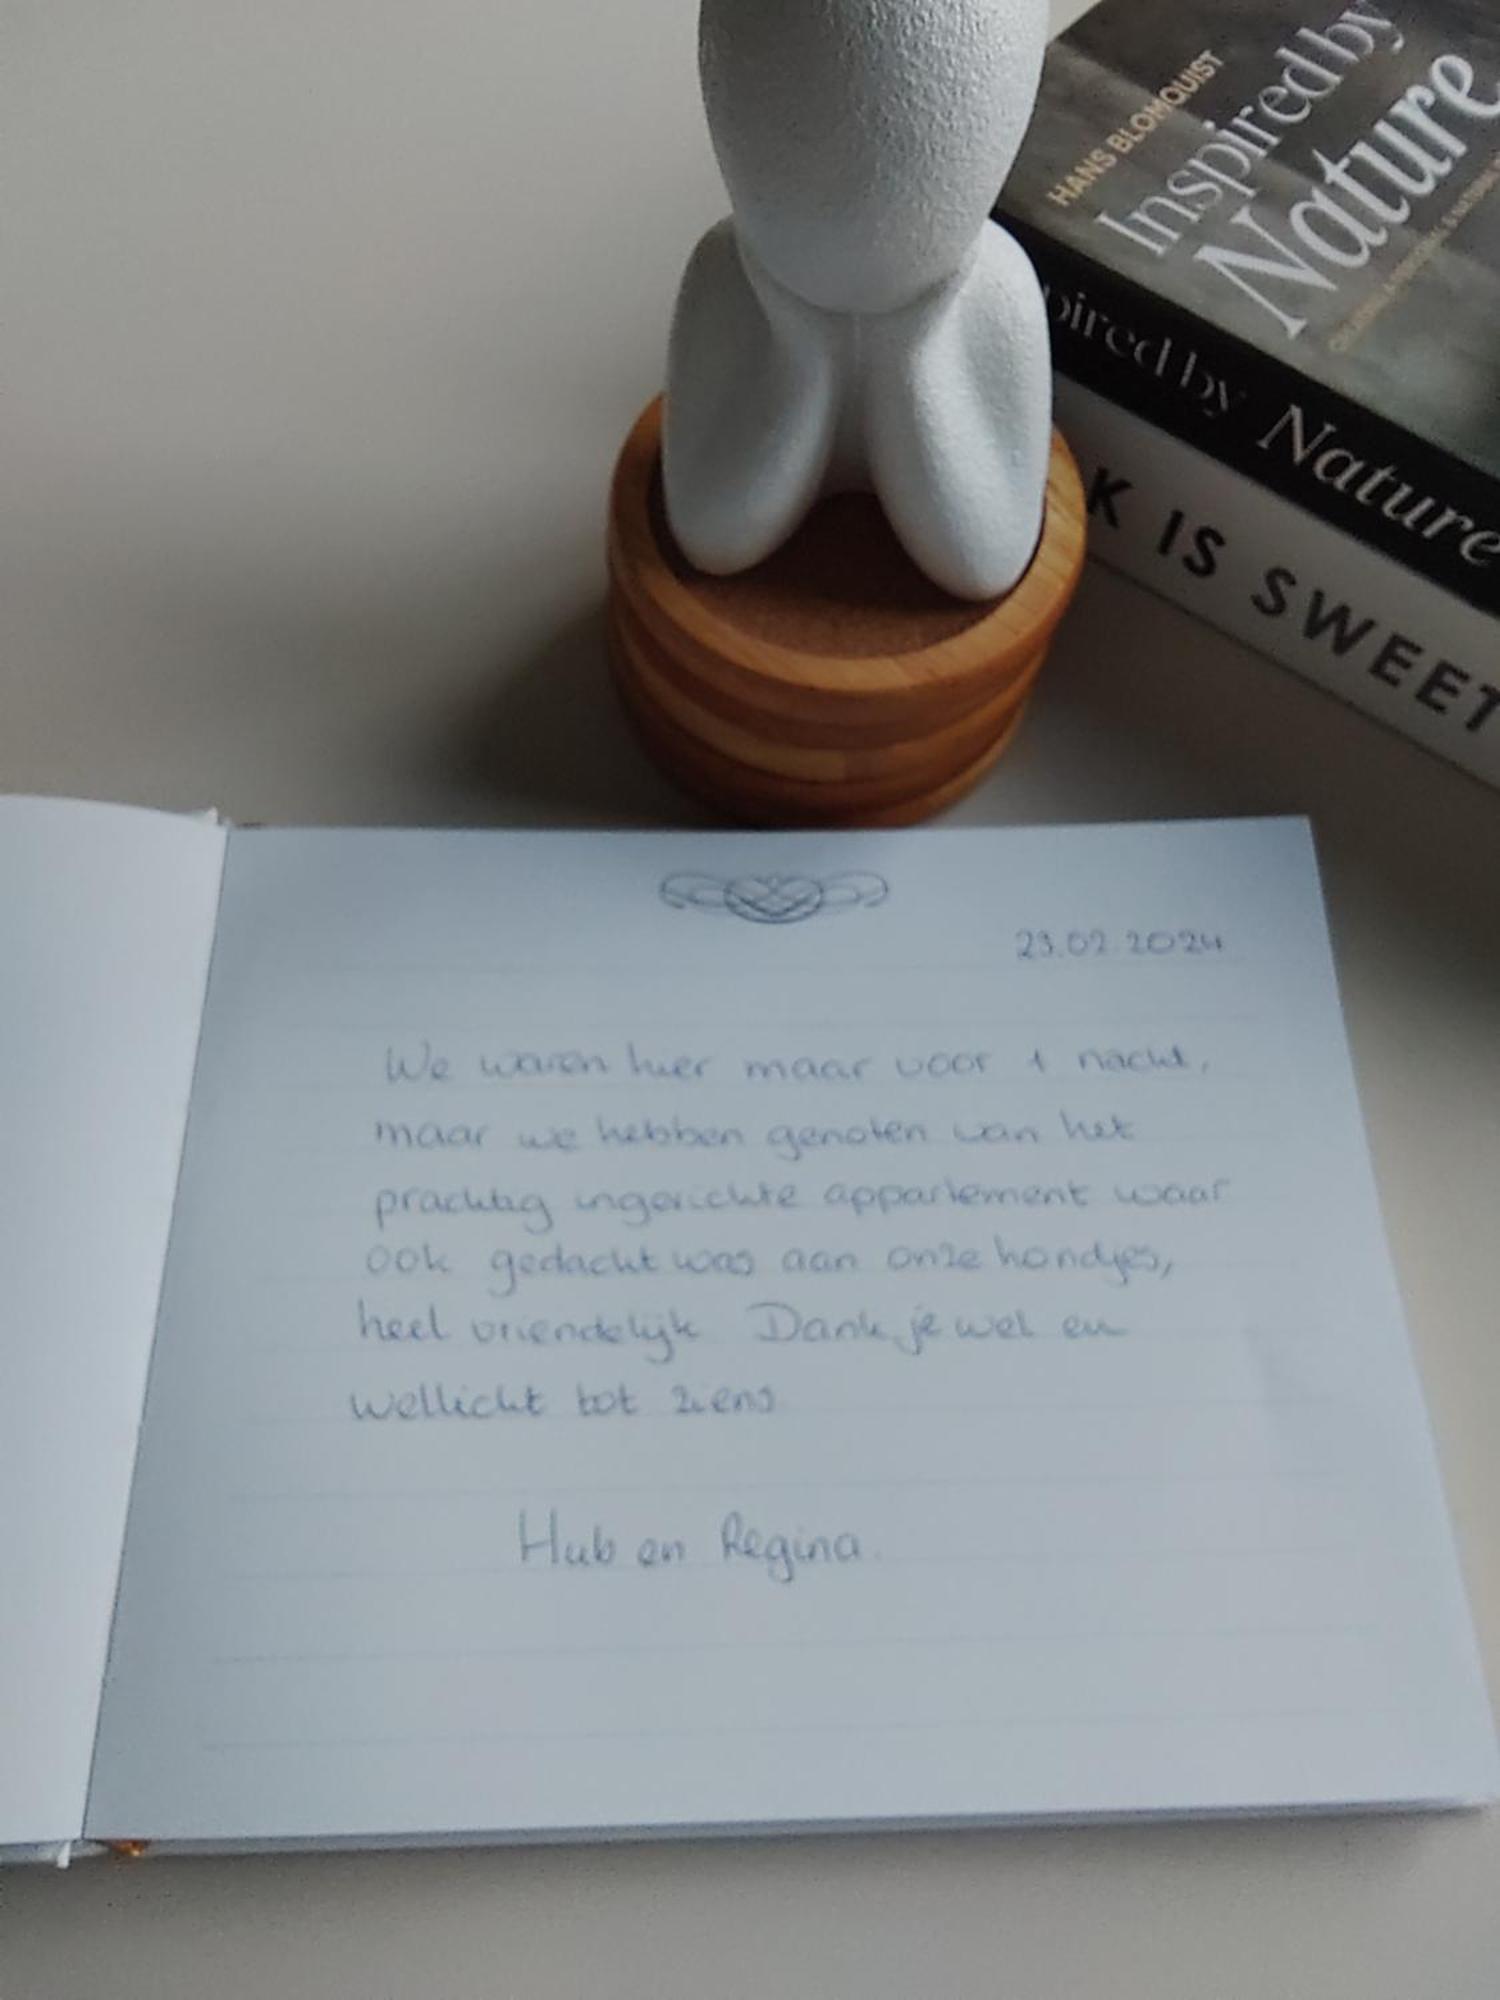 HANS BLOMQUIST
Inspired by
Nature
pired by Nature
K IS SWEET
23.02.2024
We waren hier maar voor 1 nacht,
maar we hebben genoten van het
prachtig ingerichte appartement waar
ook gedacht was aan onze hondjes,
heel vriendelijk Dank je wel en
wellicht tot ziens
Hub en Regina.